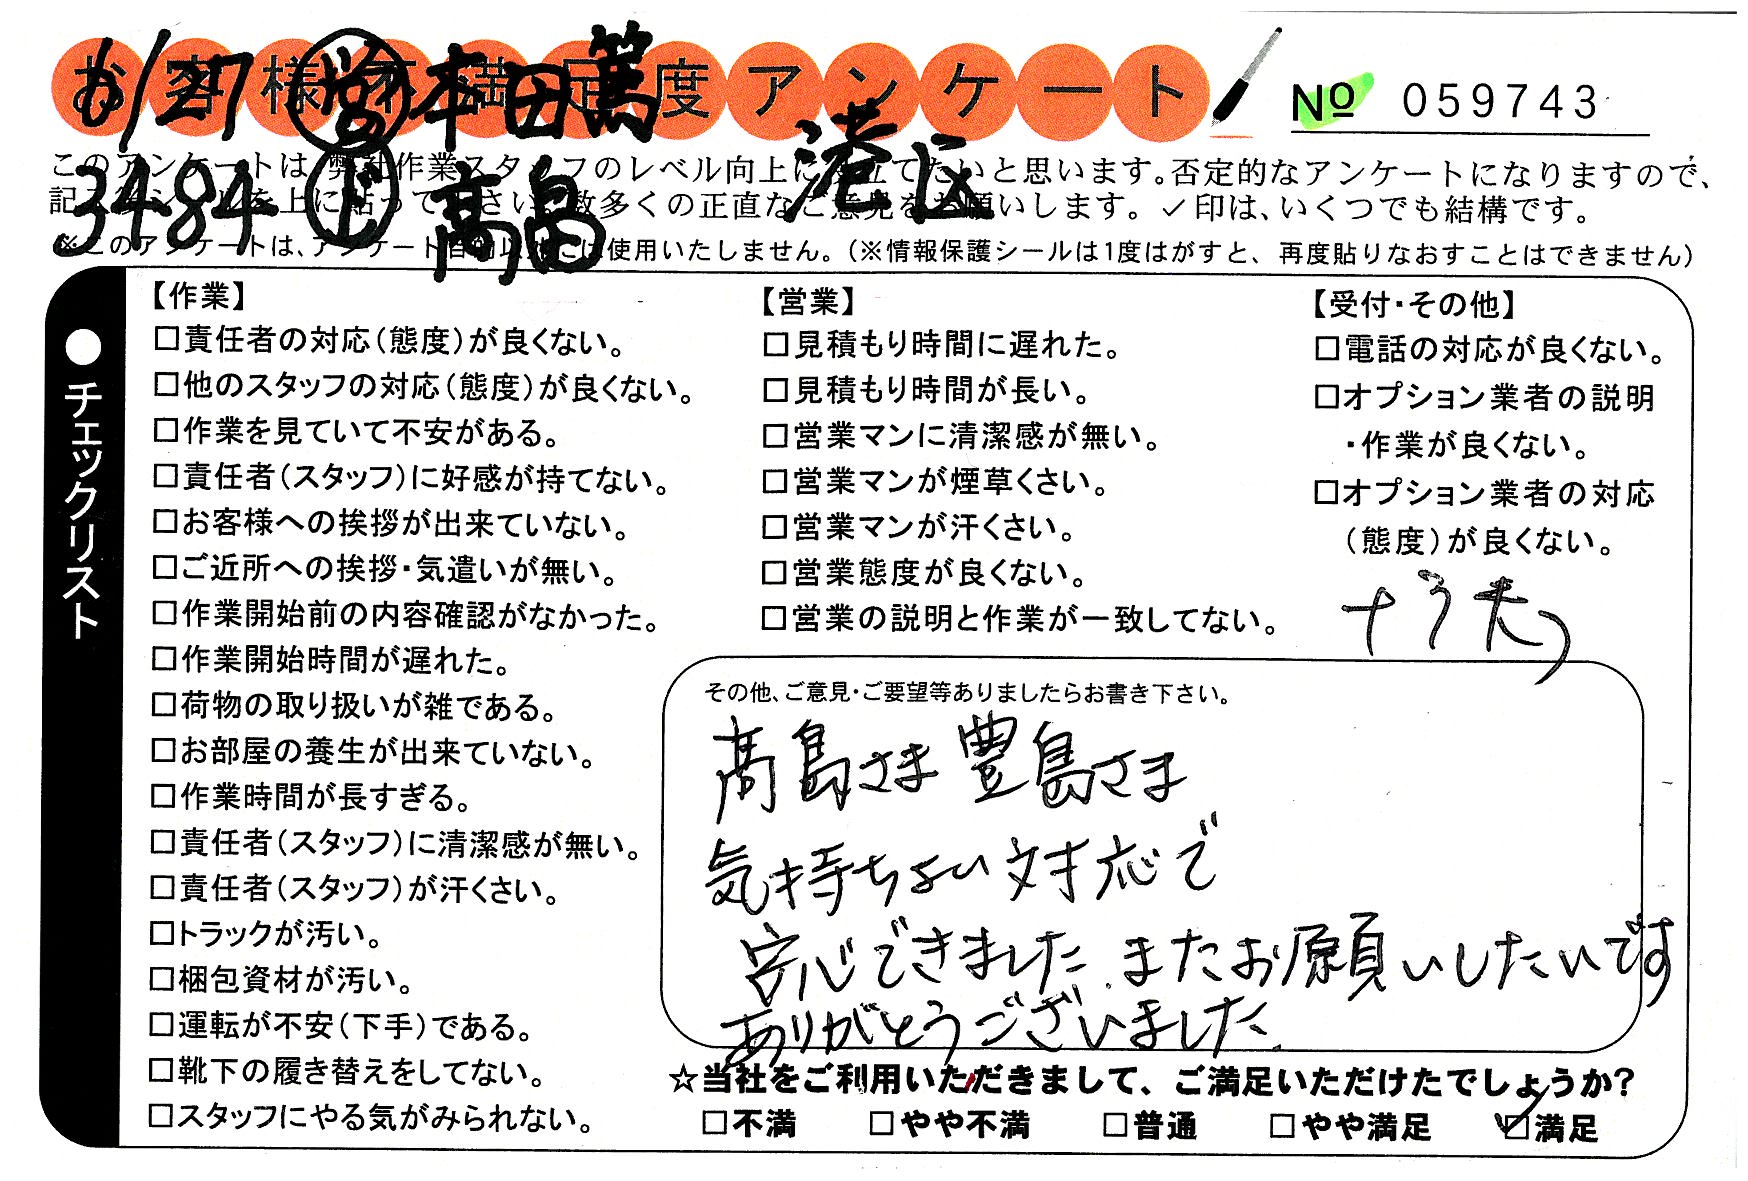 お客様不満足度アンケート
№ 059743
6/27 営 本田篤
3484 上 高畠 港区
このアンケートは、弊社作業スタッフのレベル向上に役立てたいと思います。否定的なアンケートになりますので、
記入後シールを上に貼って下さい。数多くの正直なご意見をお願いします。✓印は、いくつでも結構です。
※このアンケートは、アンケート目的以外には使用いたしません。(※情報保護シールは1度はがすと、再度貼りなおすことはできません)
●チェックリスト
【作業】
□責任者の対応(態度)が良くない。
□他のスタッフの対応(態度)が良くない。
□作業を見ていて不安がある。
□責任者(スタッフ)に好感が持てない。
□お客様への挨拶が出来ていない。
□ご近所への挨拶・気遣いが無い。
□作業開始前の内容確認がなかった。
□作業開始時間が遅れた。
□荷物の取り扱いが雑である。
□お部屋の養生が出来ていない。
□作業時間が長すぎる。
□責任者(スタッフ)に清潔感が無い。
□責任者(スタッフ)が汗くさい。
□トラックが汚い。
□梱包資材が汚い。
□運転が不安(下手)である。
□靴下の履き替えをしてない。
□スタッフにやる気がみられない。
【営業】
□見積もり時間に遅れた。
□見積もり時間が長い。
□営業マンに清潔感が無い。
□営業マンが煙草くさい。
□営業マンが汗くさい。
□営業態度が良くない。
□営業の説明と作業が一致してない。
【受付・その他】
□電話の対応が良くない。
□オプション業者の説明
・作業が良くない。
□オプション業者の対応
(態度)が良くない。
その他、ご意見・ご要望等ありましたらお書き下さい。
髙島さま 豊島さま
気持ちよい対応で
安心できました。またお願いしたいです
ありがとうございました。
☆当社をご利用いただきまして、ご満足いただけたでしょうか?
□不満 □やや不満 □普通 □やや満足 ☑満足